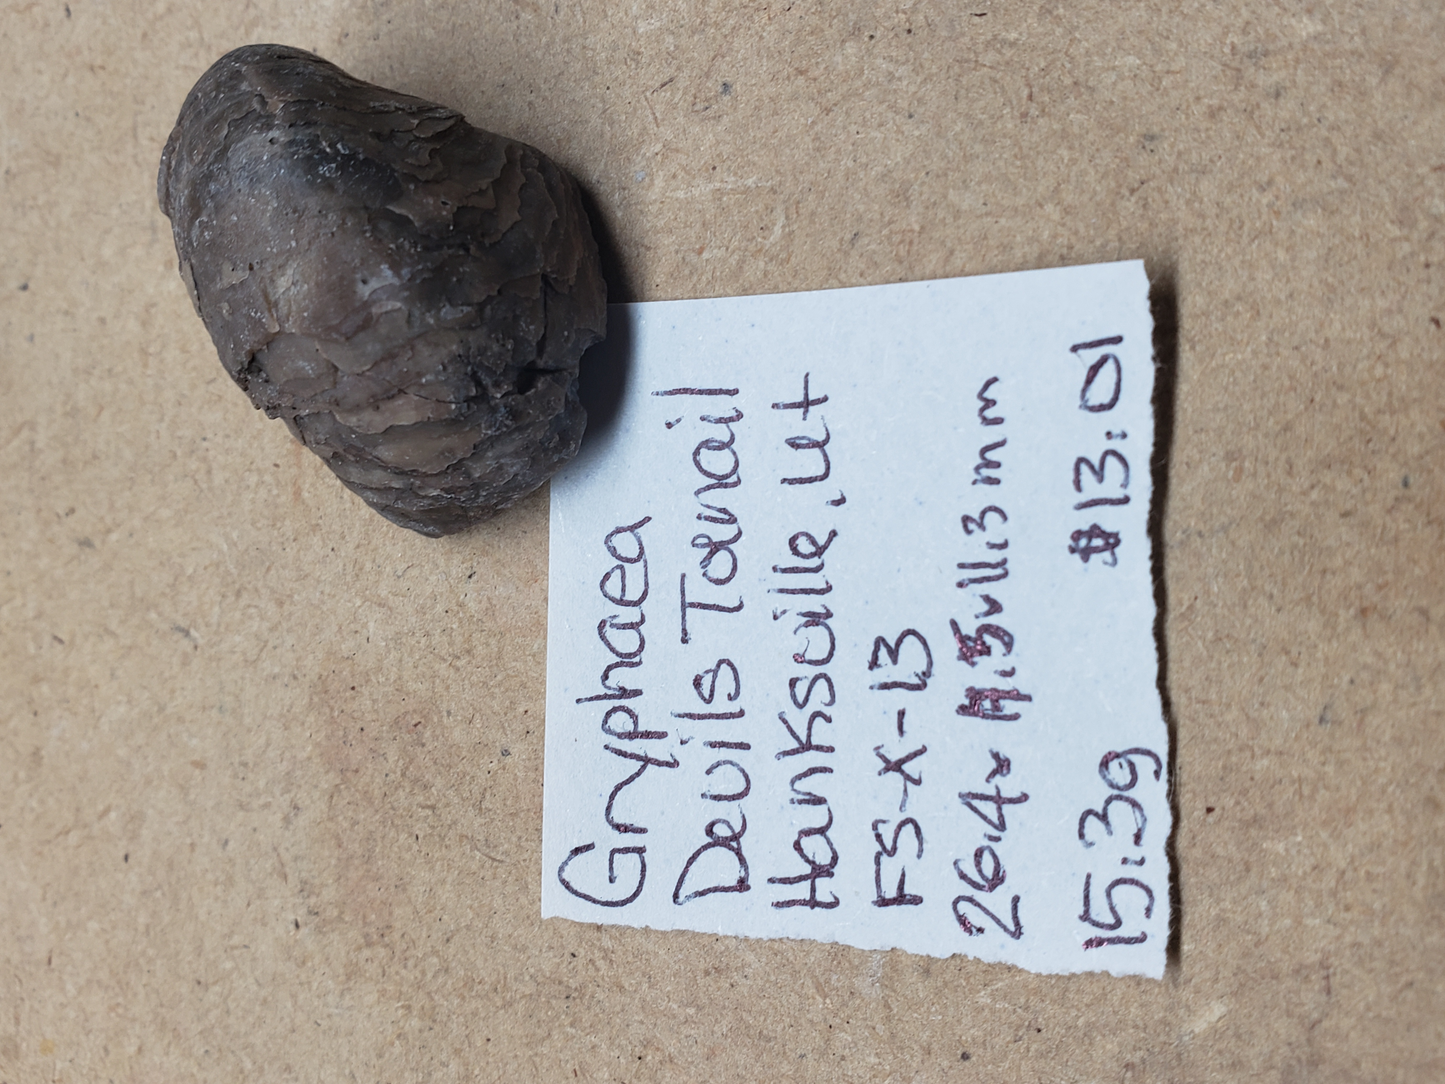 Gryphaea
Devills Toenail
Hanksville, Ut
FS-X-13
26.4x 11.3mm
15.3g #13.01